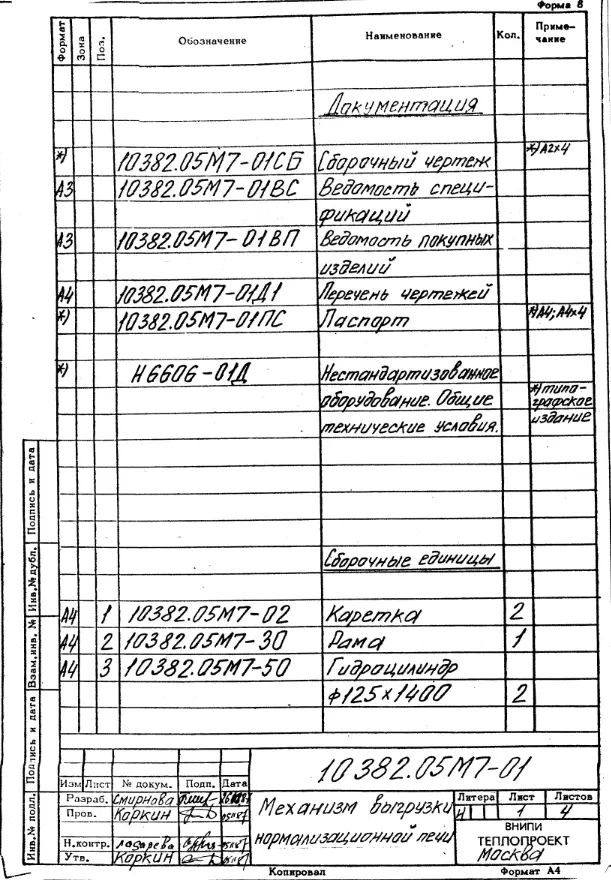 Форма 8
Формат Зона Поз. Обозначение Наименование Кол. Примечание
Документация
*) 10382.05М7-01СБ Сборочный чертеж *)А2х4
А3 10382.05М7-01ВС Ведомость специ-
фикаций
А3 10382.05М7-01ВП Ведомость покупных
изделий
А4 10382.05М7-01Д1 Перечень чертежей
*) 10382.05М7-01ПС Паспорт *)А4;А4х4
*) Н6606-01Д Нестандартизованное
оборудование. Общие *)типо-
графское
технические условия. издание
Сборочные единицы
А4 1 10382.05М7-02 Каретка 2
А4 2 10382.05М7-30 Рама 1
А4 3 10382.05М7-50 Гидроцилиндр
ф125х1400 2
Инв.№ подл. Подпись и дата Взам.инв. № Инв.№дубл. Подпись и дата
10382.05М7-01
Изм Лист № докум. Подп. Дата
Разраб. Смирнова
Пров. Коркин
Н.контр. Лазарева
Утв. Коркин
Механизм выгрузки
нормализационной печи
Литера Лист Листов
И 1 4
ВНИПИ
ТЕПЛОПРОЕКТ
Москва
Копировал Формат А4